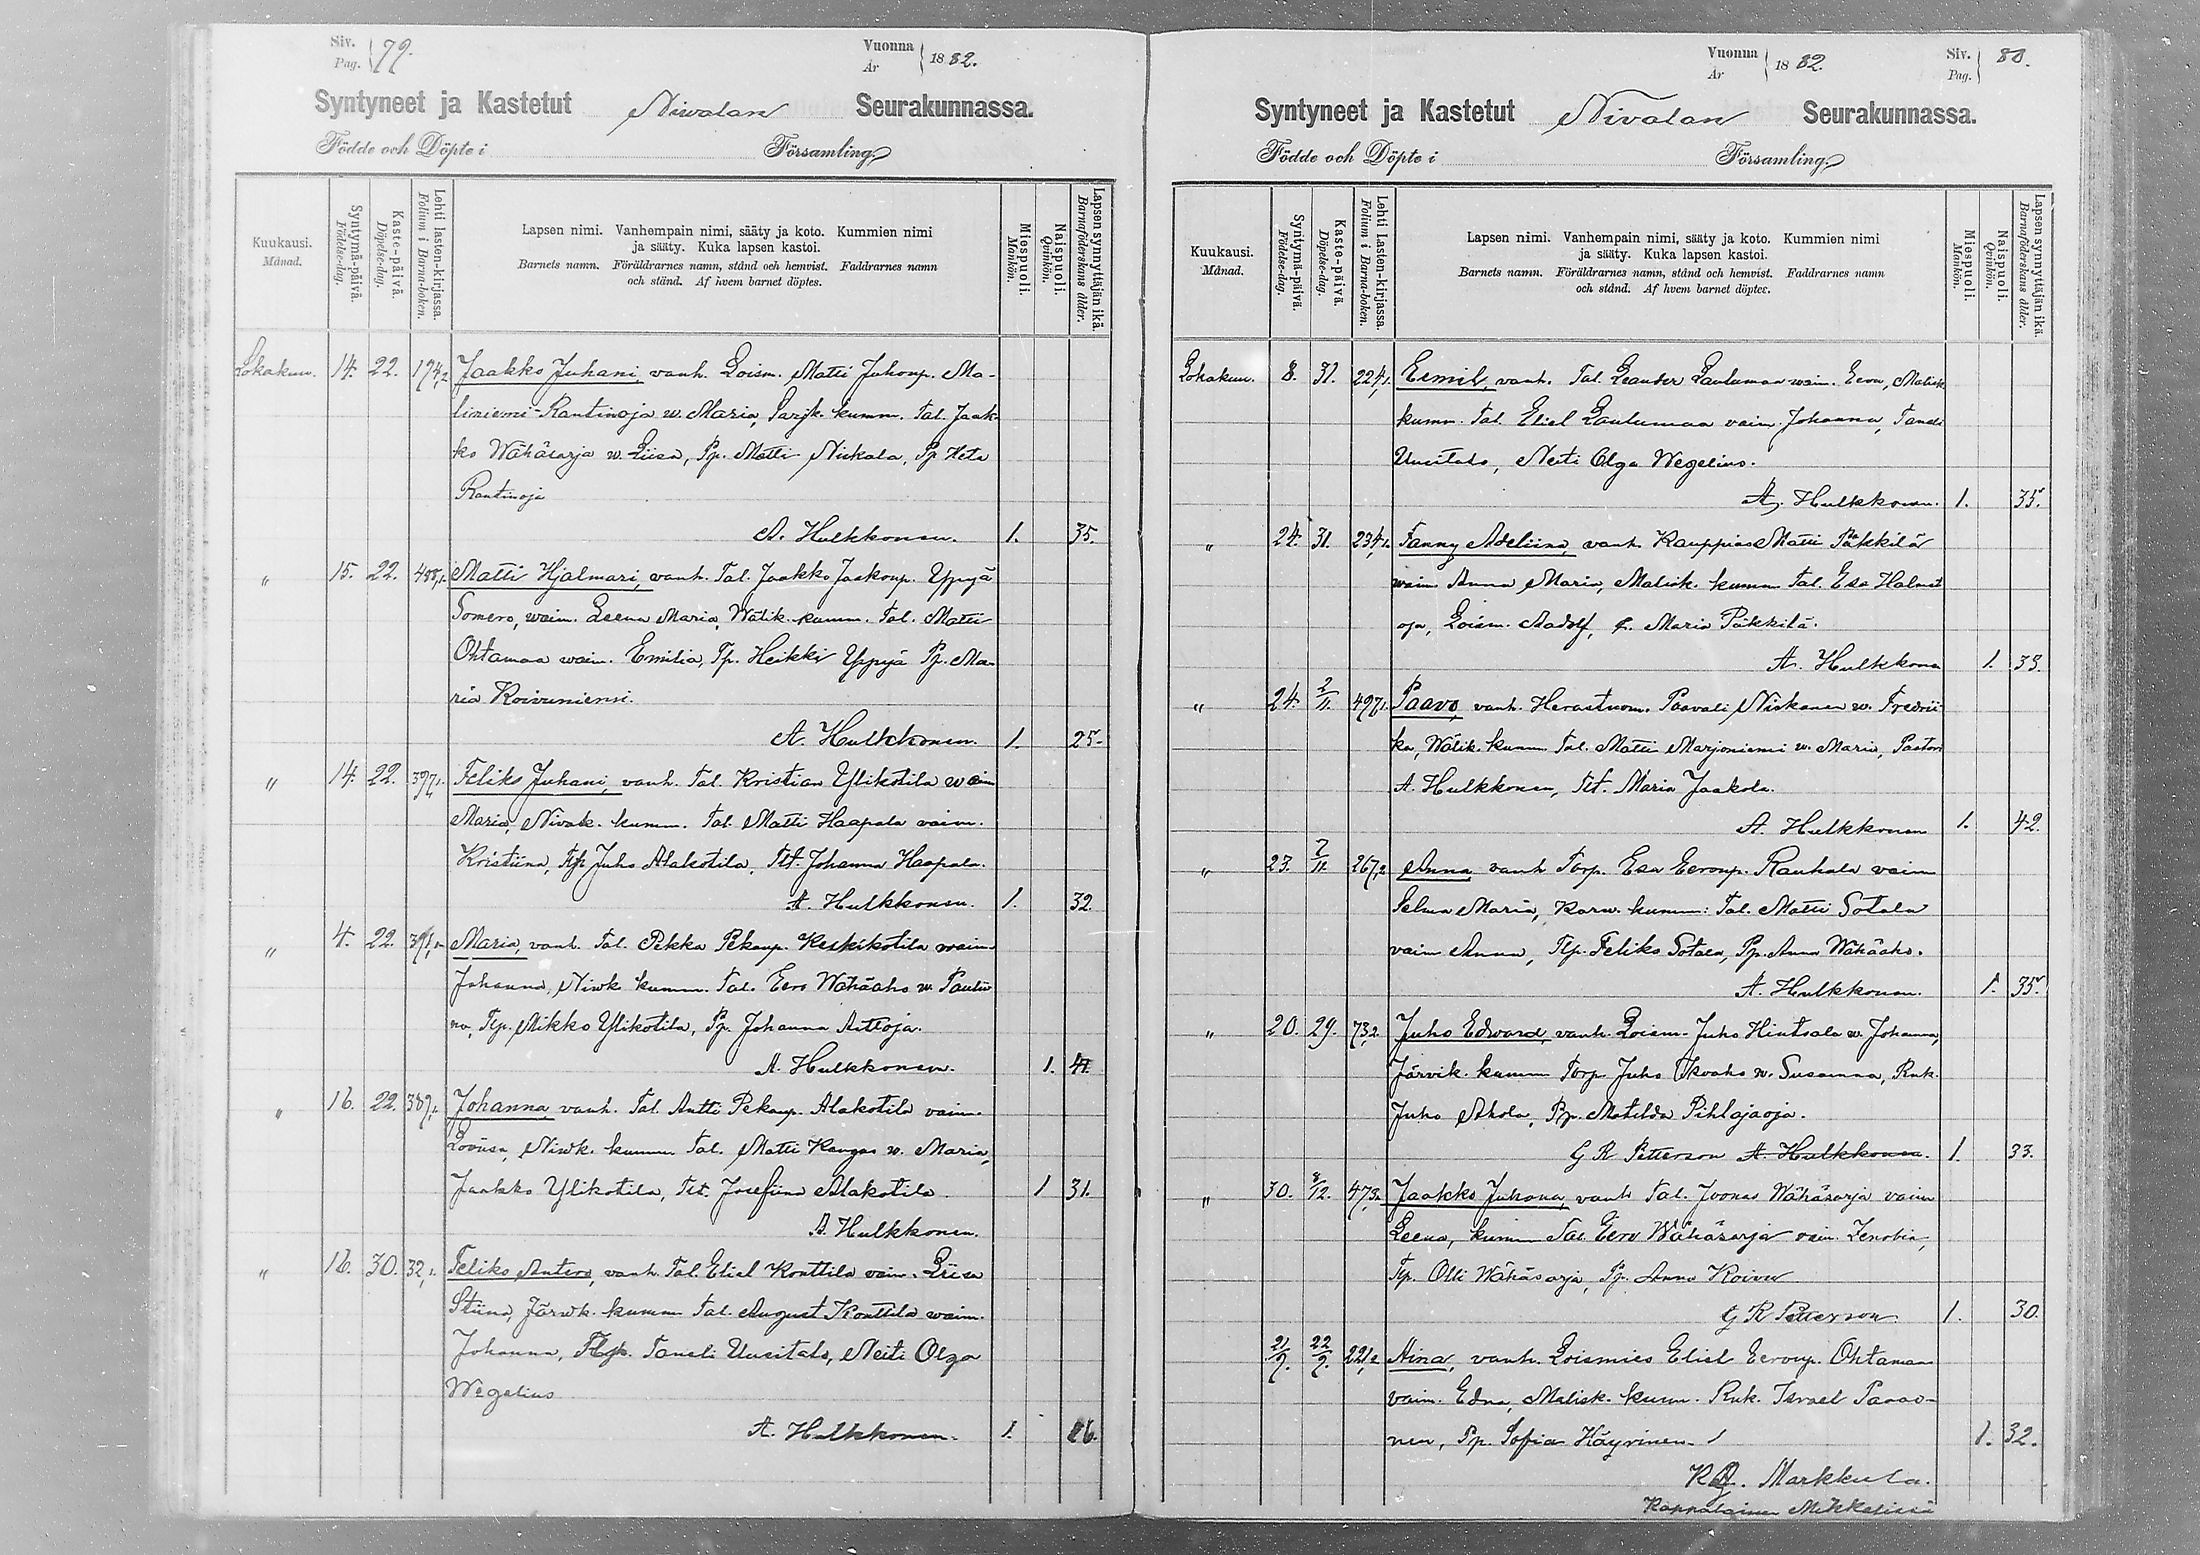 Siv. Pag. 79.
Vuonna År 1882.
Syntyneet ja Kastetut Niwalan Seurakunnassa.
Födde och Döpte i Församling.
Kuukausi. Månad.
Syntymä-päivä. Födelse-dag.
Kaste-päivä. Döpelse-dag.
Lehti lasten-kirjassa. Folium i Barna-boken.
Lapsen nimi. Vanhempain nimi, sääty ja koto. Kummien nimi
ja sääty. Kuka lapsen kastoi.
Barnets namn. Föräldrarnes namn, stånd och hemvist. Faddrarnes namn
och stånd. Af hvem barnet döptes.
Miespuoli. Mankön.
Naispuoli. Qvinkön.
Lapsen synnyttäjän ikä. Barnaföderskans ålder.
Lokakuu. 14. 22. 174,2 Jaakko Juhani, vanh. Loism. Matti Juhonp. Ma-
liniemi-Rantinoja w. Maria, Sarjk. kumm. Tal. Jaak-
ko Wähäsarja w. Liisa, Pp. Matti Niskala, Pp Heta
Rantinoja
A. Hulkkonen. 1. 35.
" 15. 22. Matti Hjalmari, vanh. Tal. Jaakko Jaakonp. Yppyä
Somero, waim. Leena Maria, Wälik. kumm. Tal. Matti
Ohtamaa waim. Emilia, Tp. Heikki Yppyä Pp. Ma-
ria Koivuniemi.
A. Hulkkonen. 1. 25.
" 14. 22. 397,1. Feliks Juhani, vanh. Tal. Kristian Ylikotila waim
Maria, Nivak. kumm. Tal. Matti Haapala vaim.
Kristiina, Tlp. Juho Alakotila, Tlt. Johanna Haapala.
A. Hulkkonen. 1. 32
" 4. 22. Maria, vanh. Tal. Pekka Pekanp. Keskikotila waim
Johanna, Niwk kumm. Tal. Eero Wähäaho w. Pauliii
na, Tlp. Mikko Ylikotila, Pp. Johanna Aittoja.
A. Hulkkonen. 1. 41.
" 16. 22. 389,1. Johanna, vanh. Tal. Antti Pekanp. Alakotila vaim.
Loviisa, Niwk. kumm. Tal. Matti Kangas w. Maria,
Jaakko Ylikotila, Tlt. Josefiina Alakotila. 1 31.
A. Hulkkonen.
" 16. 30. 32,1. Feliks Antero, vanh. Tal. Eliel Konttila vaim. Liisa
Stiina, Järwk. kumm. Tal. August Konttila waim.
Johanna, Taneli Uusitalo, Neiti Olga
Wegelius
A. Hulkkonen. 1. 26.
Vuonna År 1882.
Siv. Pag. 80.
Syntyneet ja Kastetut Nivalan Seurakunnassa.
Födde och Döpte i Församling.
Kuukausi. Månad.
Syntymä-päivä. Födelse-dag.
Kaste-päivä. Döpelse-dag.
Lehti Lasten-kirjassa. Folium i Barna-boken.
Lapsen nimi. Vanhempain nimi, sääty ja koto. Kummien nimi
ja sääty. Kuka lapsen kastoi.
Barnets namn. Föräldrarnes namn, stånd och hemvist. Faddrarnes namn
och stånd. Af hvem barnet döptes.
Miespuoli. Mankön.
Naispuoli. Qvinkön.
Lapsen synnyttäjän ikä. Barnaföderskans ålder.
Lokakuu. 8. 31. 224,1. Eemil, vanh. Tal. Leander Laulumaa waim. Eeva, Malisk
kumm. Tal. Eliel Laulumaa vaim. Johanna, Taneli
Uusitalo, Neiti Olga Wegelius.
A. Hulkkonen. 1. 35.
" 24. 31. 234,1. Fanny Adeliina, vanh. Kauppias Matti Päkkilä
waim Anna Maria, Malisk. kumm Tal. Esa Halmet
oja, Loism. Aadolf, Maria Päkkilä.
A. Hulkkonen 1. 33.
" 24. 2/11. 497,1. Paavo, vanh. Herastuom. Paavali Niskanen w. Fredrii
ka, Wälik. kumm Tal. Matti Marjoniemi w. Maria, Pastori
A. Hulkkonen, Tlt. Maria Jaakola.
A. Hulkkonen 1. 42.
" 23. 7/11. 267,2 Anna, vanh Torp. Esa Eeronp. Rauhala vaim
Selma Maria, Karw. kumm: Tal. Matti Sotala
vaim Anna, Tlp. Feliks Sotala, Pp. Anna Wähäaho.
A. Hulkkonen. 1. 35.
" 20. 29. 73,2. Juho Edward, vanh. Loism. Juho Hintsala w. Johanna,
Järvik. kumm Torp. Juho Ukvaho w. Susanna, Rnk.
Juho Ahola, Pp. Matilda Pihlajaoja.
G R Petterson A. Hulkkonen. 1. 33.
" 30. 8/12. 47,3. Jaakko Juhana, vanh Tal. Joonas Wähäsarja vaim
Leena, kumm Tal Eero Wähäsarja vaim. Zenobia,
Tlp. Olli Wähäsarja, Pp. Anna Koivu
G R Petterson 1. 30.
21/9. 22/9. 221,2 Aina, vanh. Loismies Eliel Eeronp. Ohtamaa
vaim. Edna, Malisk. kumm. Rnk. Israel Paaso-
nen, Pp. Sofia Häyrinen. 1. 32.
Markkula.
Kappalainen Mikkelissä